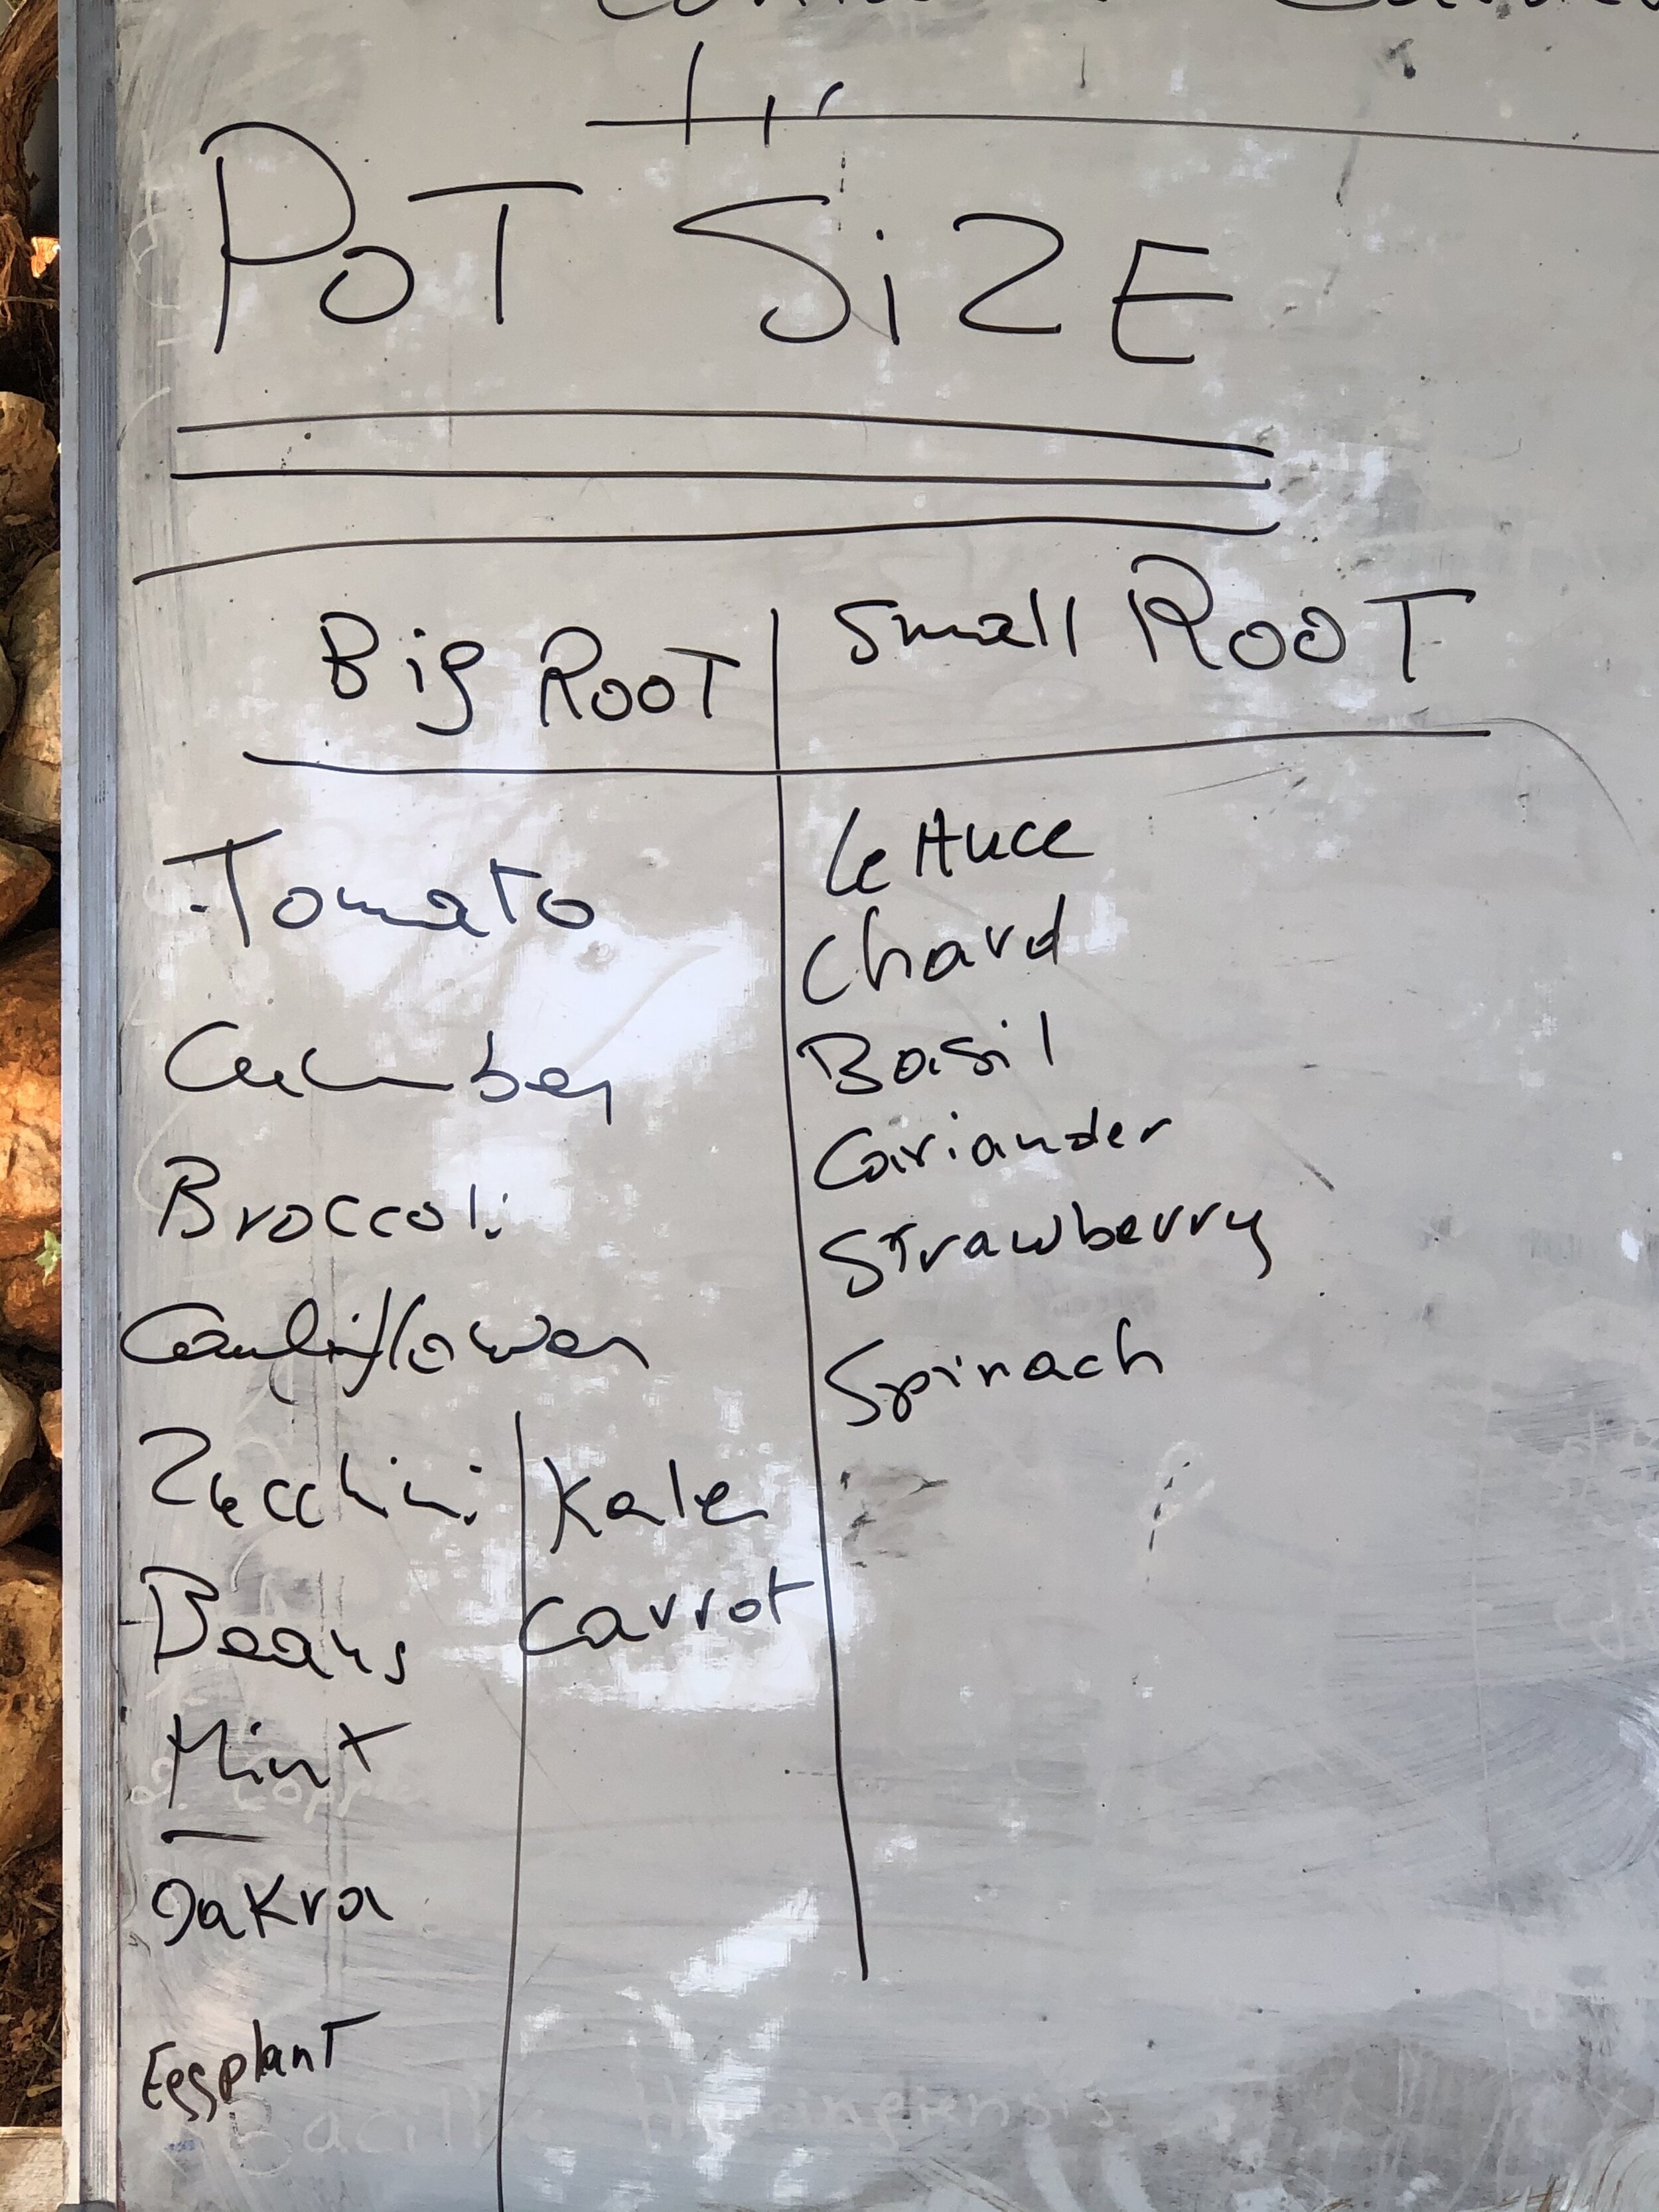 POT SiZE
Big ROOT
Small ROOT
Tomato
Cucumber
Broccoli
Cauliflower
Zucchini
Beans
Mint
Oakra
Eggplant
Kale
Carrot
Lettuce
Chard
Basil
Coriander
Strawberry
Spinach